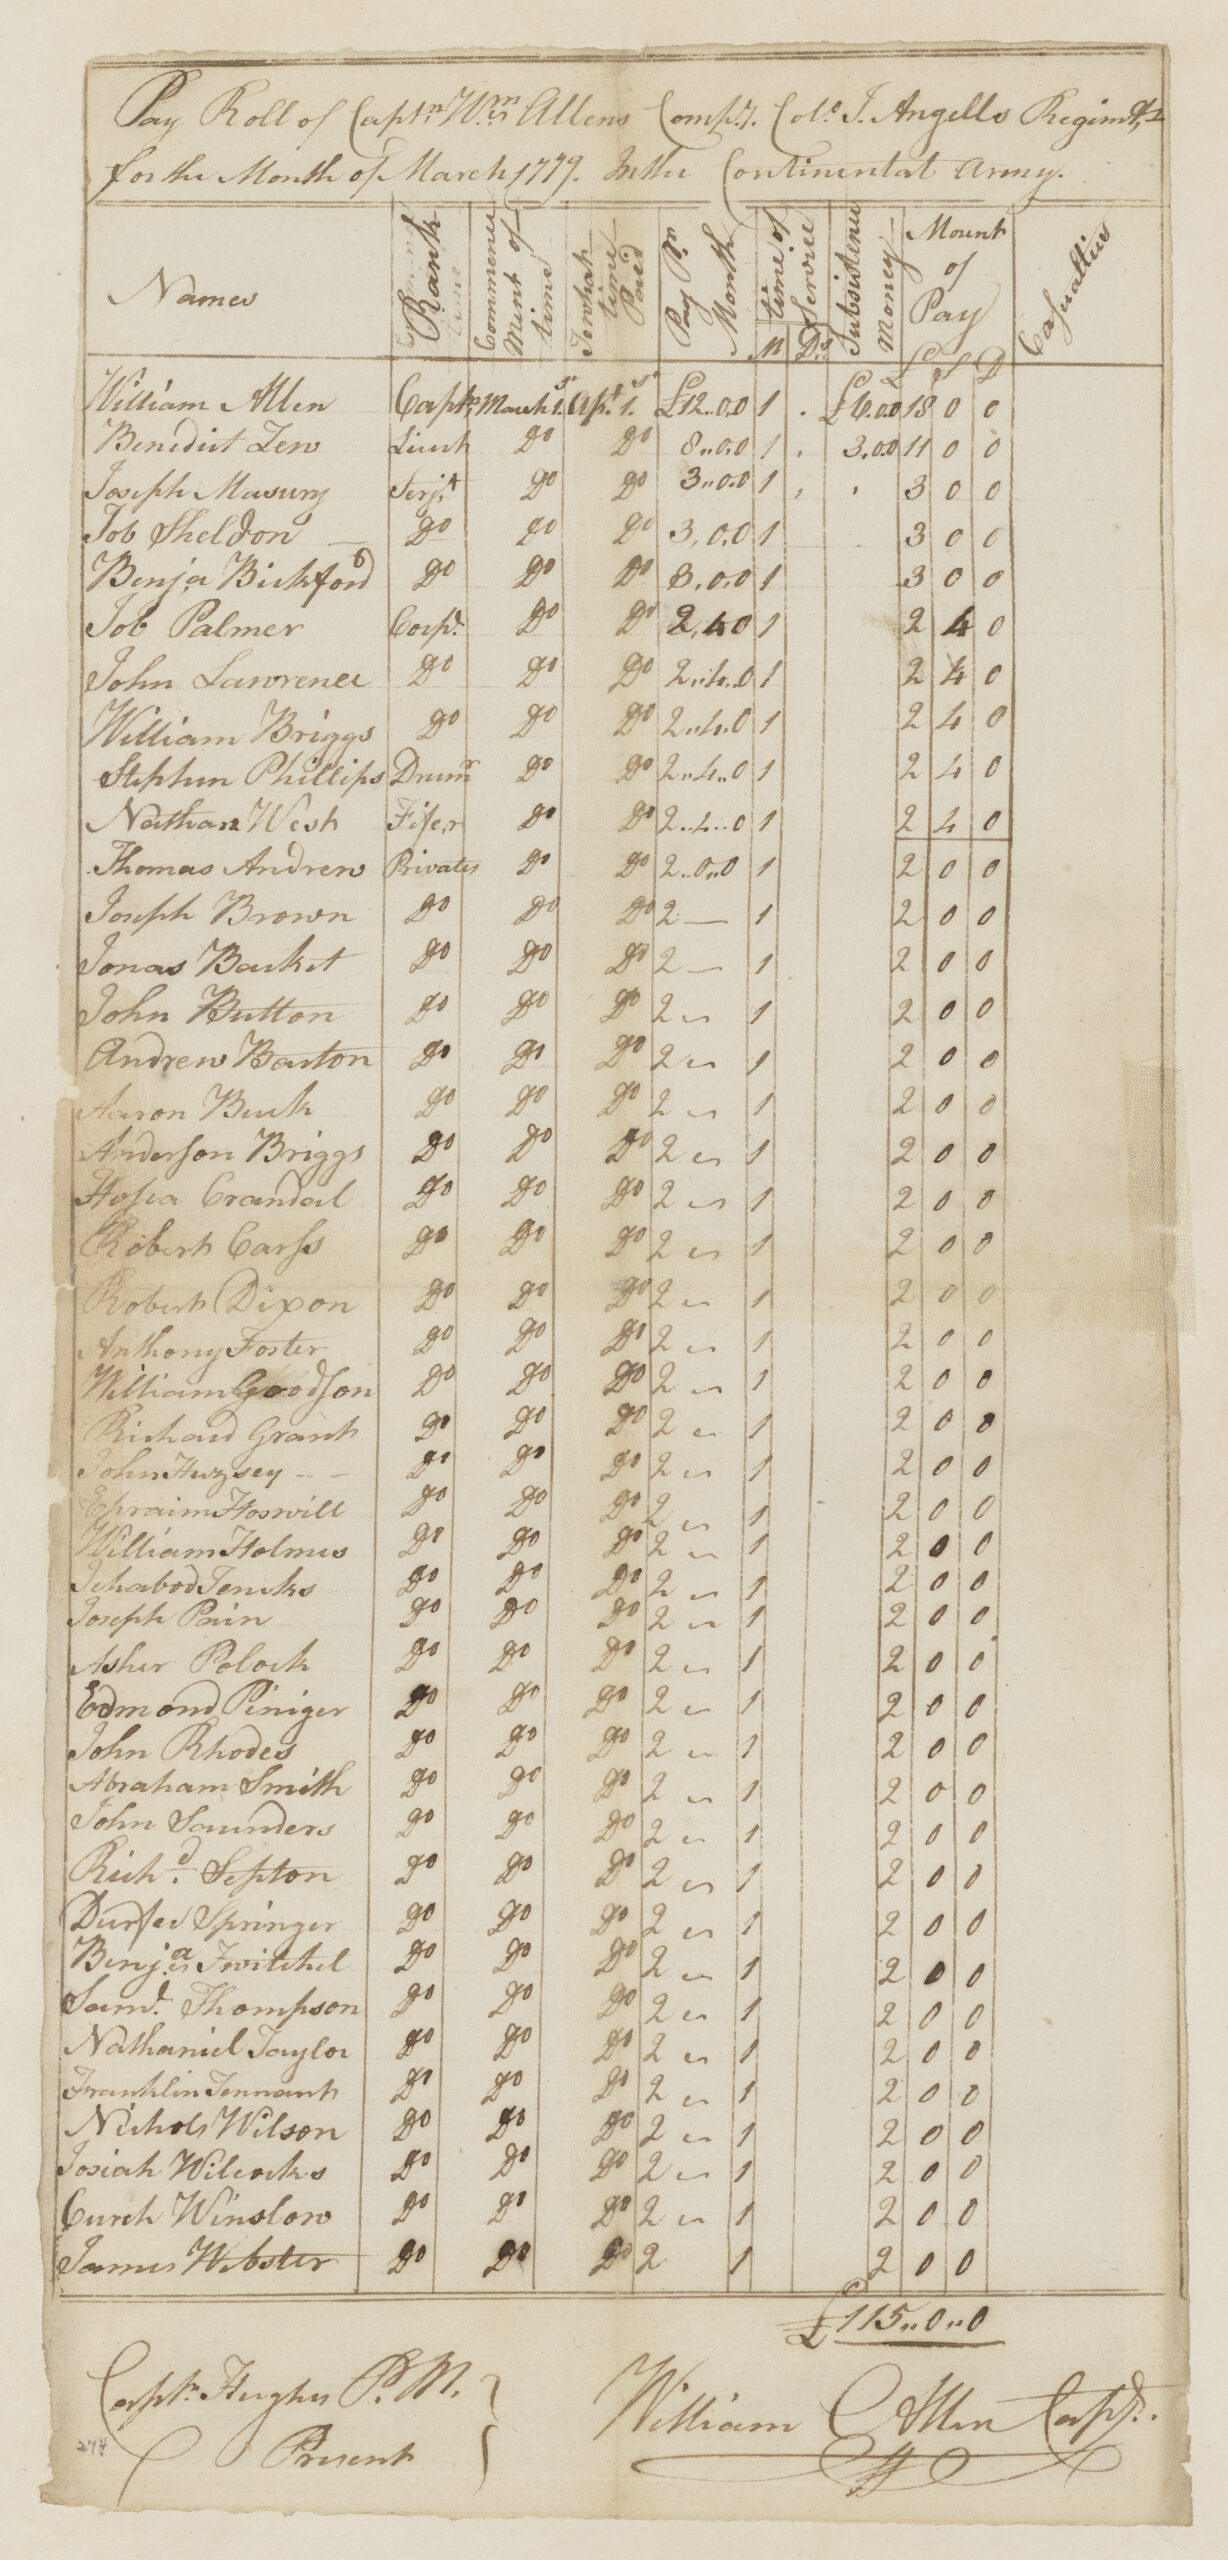 Pay Roll of Captn. Wm. Allens Compy. Colo. I. Angells Regimt,
for the Month of March 1779. In the Continental Army.
Names Rank Commence Ment of time To what time Paid Pay Pr. Month time of Service M Ds. Subsistence Money Mount of Pay £ S D Casualties
William Allen Captn. March 1st Apl. 1st £12..0.0 1 . £6.0.0 18 0 0
Benedict Tew Lieut Do Do 8..0.0 1 . 3.0.0 11 0 0
Joseph Masury Serjt Do Do 3..0.0 1 3 0 0
Job Sheldon Do Do Do 3,0.0 1 3 0 0
Benja Bickford Do Do Do 3.0.0 1 3 0 0
Job Palmer Corpl. Do Do 2,4 0 1 2 4 0
John Lawrence Do Do Do 2..4..0 1 2 4 0
William Briggs Do Do Do 2..4.0 1 2 4 0
Stephen Phillips Drumr Do Do 2..4..0 1 2 4 0
Nathan West Fifer Do Do 2..4..0 1 2 4 0
Thomas Andrew Privates Do Do 2..0..0 1 2 0 0
Joseph Brown Do Do Do 2 — 1 2 0 0
Jonas Backet Do Do Do 2 — 1 2 0 0
John Button Do Do Do 2 1 2 0 0
Andrew Barton Do Do Do 2 1 2 0 0
Aaron Buck Do Do Do 2 1 2 0 0
Anderson Briggs Do Do Do 2 1 2 0 0
Hosea Crandal Do Do Do 2 1 2 0 0
Robert Carss Do Do Do 2 1 2 0 0
Robert Dixon Do Do Do 2 1 2 0 0
Anthony Foster Do Do Do 2 1 2 0 0
William Goodson Do Do Do 2 1 2 0 0
Richard Grant Do Do Do 2 1 2 0 0
John Huzsey Do Do Do 2 1 2 0 0
Epraim Hoswill Do Do Do 2 1 2 0 0
William Holmes Do Do Do 2 1 2 0 0
Ichabod Jencks Do Do Do 2 1 2 0 0
Joseph Pain Do Do Do 2 1 2 0 0
Asher Polock Do Do Do 2 1 2 0 0
Edmond Piniger Do Do Do 2 1 2 0 0
John Rhodes Do Do Do 2 1 2 0 0
Abraham Smith Do Do Do 2 1 2 0 0
John Saunders Do Do Do 2 1 2 0 0
Richd. Sephton Do Do Do 2 1 2 0 0
Durfee Springer Do Do Do 2 1 2 0 0
Benja Twitchel Do Do Do 2 1 2 0 0
Saml. Thompson Do Do Do 2 1 2 0 0
Nathaniel Taylor Do Do Do 2 1 2 0 0
Franklin Tennant Do Do Do 2 1 2 0 0
Nichols Wilson Do Do Do 2 1 2 0 0
Josiah Wilcocks Do Do Do 2 1 2 0 0
Curch Winslow Do Do Do 2 1 2 0 0
James Webster Do Do Do 2 1 2 0 0
£115..0..0
Captn. Hughes P. M.
Present
William Allen Captn.
274